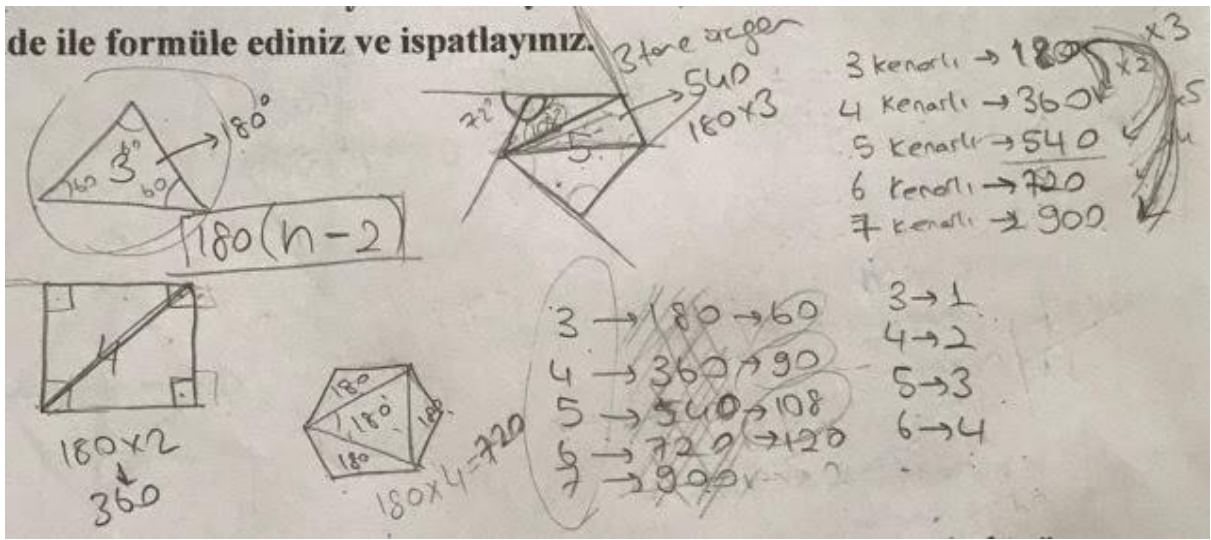 de ile formüle ediniz ve ispatlayınız.
180°
60
60
60
3
180(n-2)
3 tane üçgen
540
180x3
72°
108°
5
3 kenarlı → 180
4 kenarlı → 360
5 kenarlı → 540
6 kenarlı → 720
7 kenarlı → 900
x3
x2
x5
4
4
180x2
↓
360
180
180
180
180
180x4=720
3 → 180 → 60
4 → 360 → 90
5 → 540 → 108
6 → 720 → 120
7 → 900
3→1
4→2
5→3
6→4